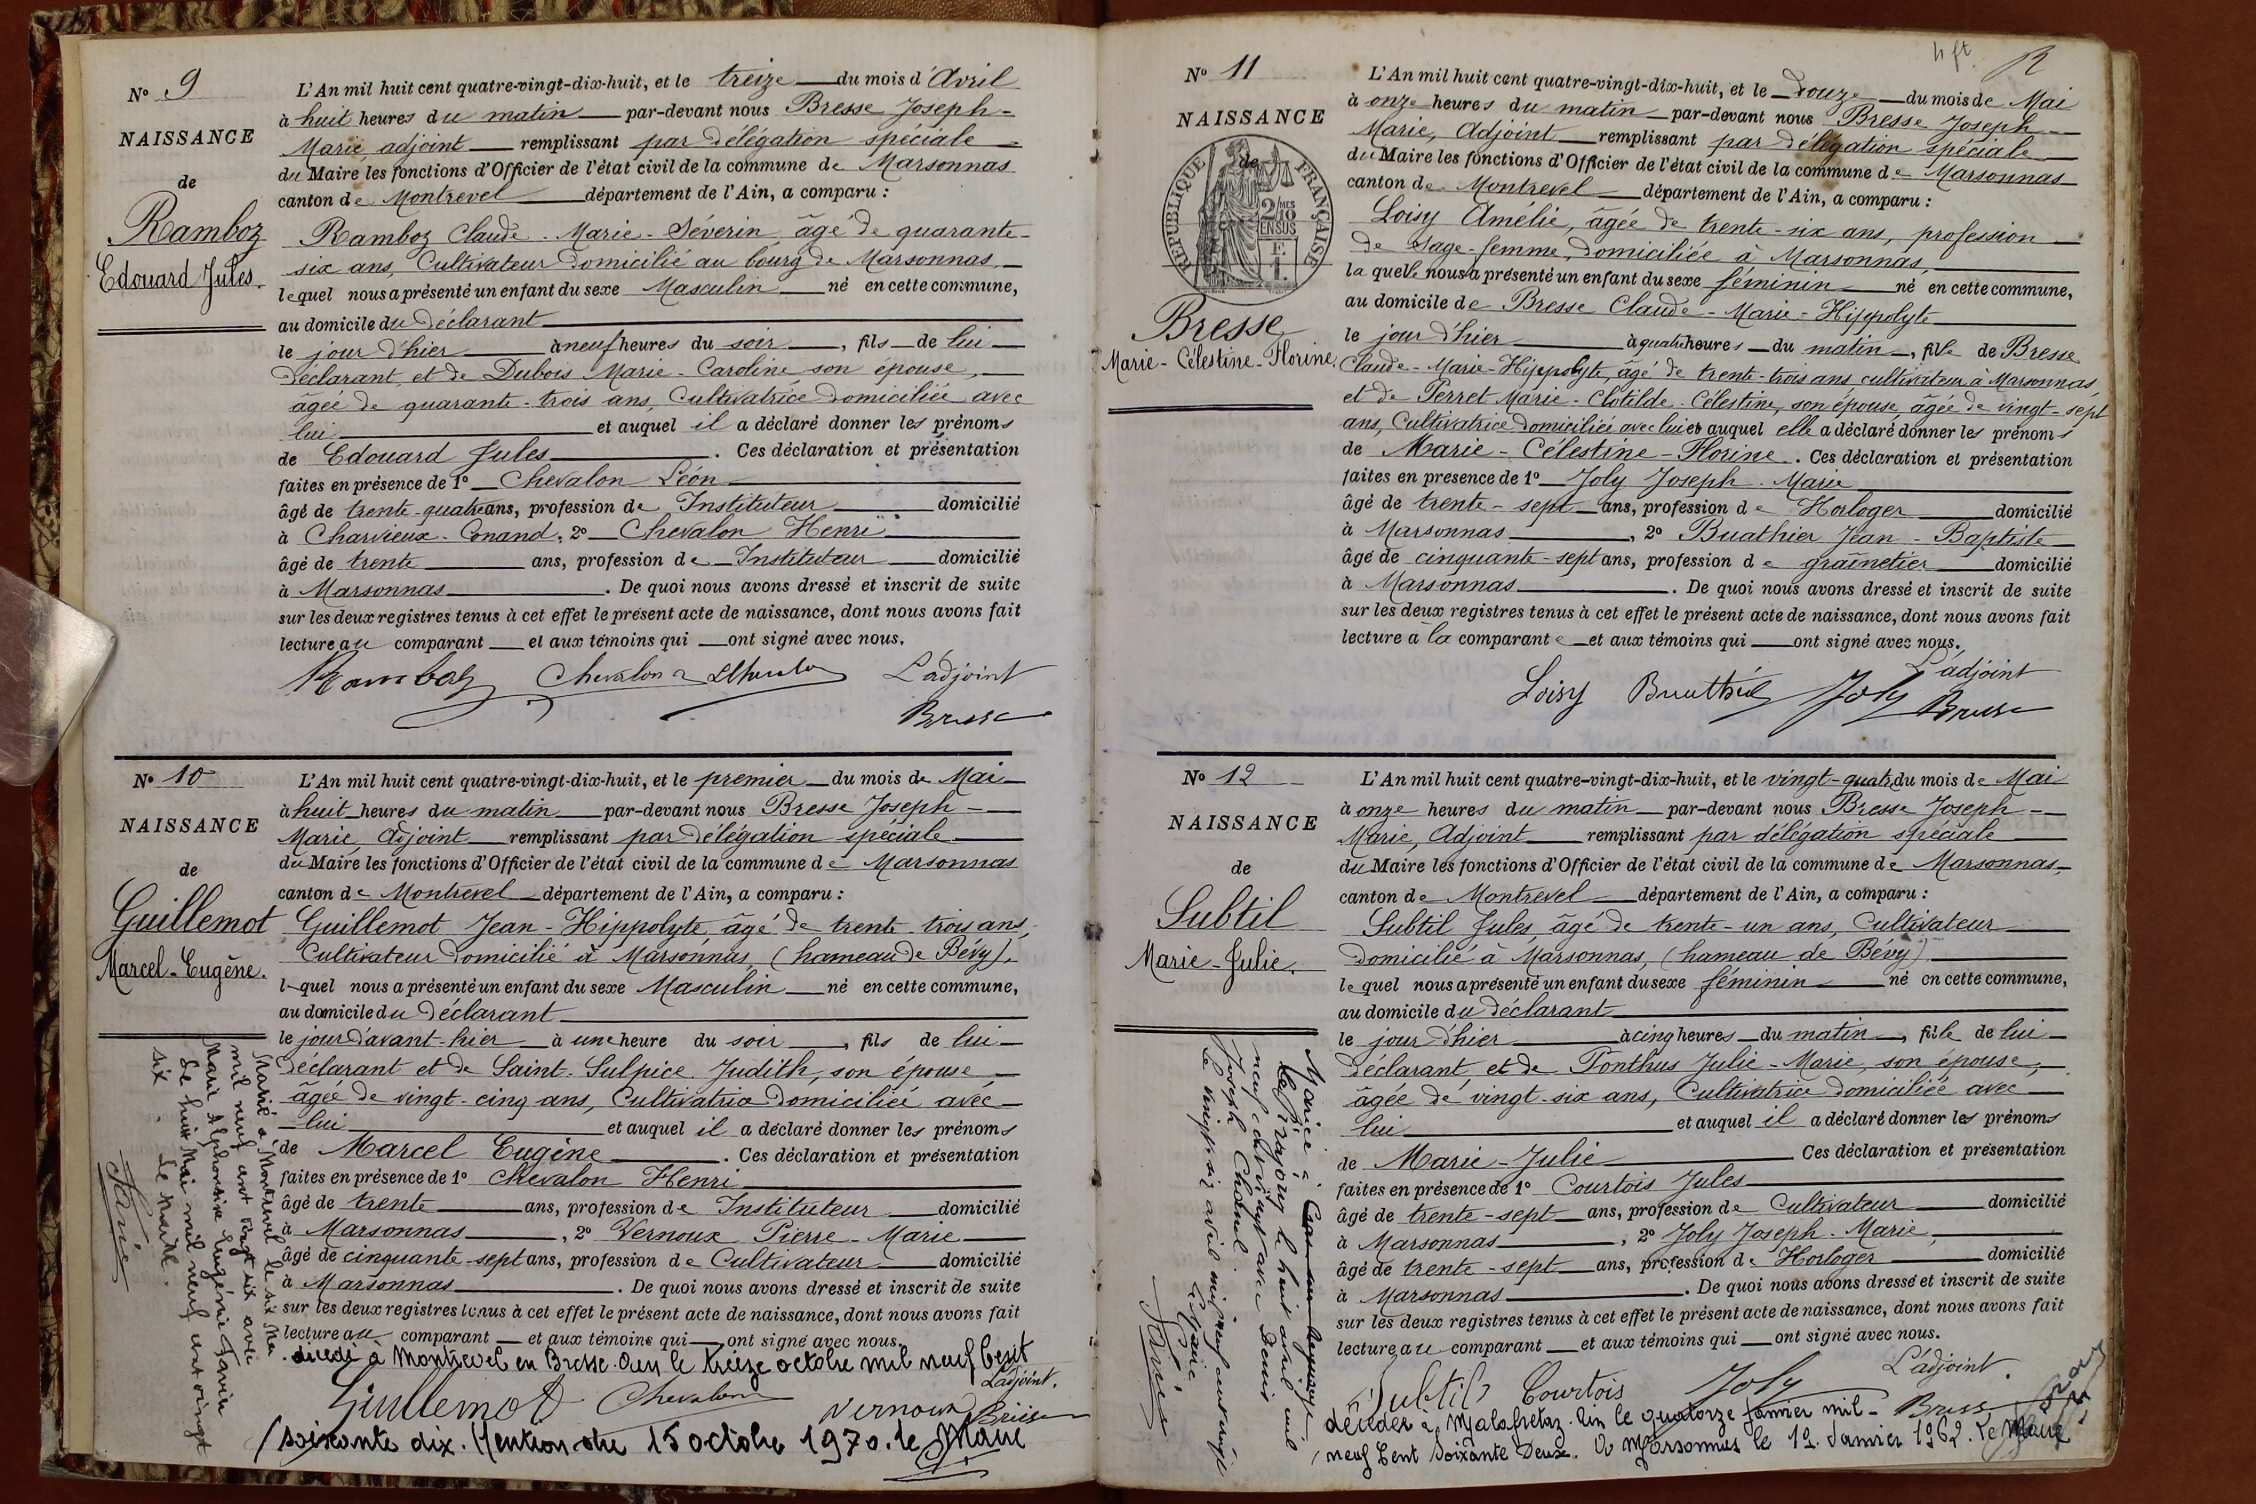 N° 9
NAISSANCE
de
Ramboz
Edouard Jules.
L'An mil huit cent quatre-vingt-dix-huit, et le treize du mois d'Avril
à huit heures du matin par-devant nous Bresse Joseph-
Marie adjoint remplissant par délégation spéciale
du Maire les fonctions d'Officier de l'état civil de la commune de Marsonnas
canton de Montrevel département de l'Ain, a comparu :
Ramboz Claude-Marie-Séverin âgé de quarante-
six ans, Cultivateur domicilié au bourg de Marsonnas
lequel nous a présenté un enfant du sexe Masculin né en cette commune,
au domicile du déclarant
le jour d'hier à neuf heures du soir, fils de lui
déclarant et de Dubois Marie-Caroline son épouse,
âgée de quarante-trois ans, Cultivatrice domiciliée avec
lui et auquel il a déclaré donner les prénoms
de Edouard Jules. Ces déclaration et présentation
faites en présence de 1° Chevalon Léon
âgé de trente-quatre ans, profession de Instituteur domicilié
à Charvieux-Conand, 2° Chevalon Henri
âgé de trente ans, profession de Instituteur domicilié
à Marsonnas. De quoi nous avons dressé et inscrit de suite
sur les deux registres tenus à cet effet le présent acte de naissance, dont nous avons fait
lecture au comparant et aux témoins qui ont signé avec nous.
Ramboz Chevalon L'adjoint
Bresse
N° 10
NAISSANCE
de
Guillemot
Marcel-Eugène.
L'An mil huit cent quatre-vingt-dix-huit, et le premier du mois de Mai
à huit heures du matin par-devant nous Bresse Joseph-
Marie, Adjoint remplissant par délégation spéciale
du Maire les fonctions d'Officier de l'état civil de la commune de Marsonnas
canton de Montrevel département de l'Ain, a comparu :
Guillemot Jean-Hippolyte âgé de trente trois ans,
Cultivateur domicilié à Marsonnas, (hameau de Bévy),
lequel nous a présenté un enfant du sexe Masculin né en cette commune,
au domicile du déclarant
le jour d'avant-hier à une heure du soir, fils de lui
déclarant et de Saint-Sulpice Judith, son épouse,
âgée de vingt-cinq ans, Cultivatrice domiciliée avec
lui et auquel il a déclaré donner les prénoms
de Marcel Eugène. Ces déclaration et présentation
faites en présence de 1° Chevalon Henri
âgé de trente ans, profession de Instituteur domicilié
à Marsonnas, 2° Vernoux Pierre-Marie
âgé de cinquante-sept ans, profession de Cultivateur domicilié
à Marsonnas. De quoi nous avons dressé et inscrit de suite
sur les deux registres tenus à cet effet le présent acte de naissance, dont nous avons fait
lecture au comparant et aux témoins qui ont signé avec nous.
décédé à Montrevel en Bresse Ain le treize octobre mil neuf cent
L'adjoint.
Guillemot Chevalon Vernoux Bresse
soixante dix. Mention du 15 octobre 1970. le Maire
Marié à Montrevel le six Mai
mil neuf cent vingt six avec
Marie Alphonsine Eugénie
Le huit Mai mil neuf cent vingt
six. Le Maire.
N° 11
NAISSANCE
de
RÉPUBLIQUE FRANÇAISE
2/10 MES
EN SUS
F.
1.
Bresse
Marie-Célestine-Florine.
L'An mil huit cent quatre-vingt-dix-huit, et le douze du mois de Mai
à onze heures du matin par-devant nous Bresse Joseph
Marie, Adjoint remplissant par délégation spéciale
du Maire les fonctions d'Officier de l'état civil de la commune de Marsonnas
canton de Montrevel département de l'Ain, a comparu :
Loisy Amélie, âgée de trente-six ans, profession
de Sage-femme, domiciliée à Marsonnas,
laquelle nous a présenté un enfant du sexe féminin né en cette commune,
au domicile de Bresse Claude-Marie-Hippolyte
le jour d'hier à quatre heures du matin, fille de Bresse
Claude-Marie-Hippolyte, âgé de trente-trois ans, cultivateur à Marsonnas
et de Perret Marie-Clotilde-Célestine, son épouse, âgée de vingt-sept
ans, Cultivatrice domiciliée avec lui et auquel elle a déclaré donner les prénoms
de Marie-Célestine-Florine. Ces déclaration et présentation
faites en présence de 1° Joly Joseph-Marie
âgé de trente-sept ans, profession de Horloger domicilié
à Marsonnas, 2° Buathier Jean-Baptiste
âgé de cinquante-sept ans, profession de grainetier domicilié
à Marsonnas. De quoi nous avons dressé et inscrit de suite
sur les deux registres tenus à cet effet le présent acte de naissance, dont nous avons fait
lecture à la comparante et aux témoins qui ont signé avec nous.
L'adjoint
Loisy Buathier Joly Bresse
N° 12
NAISSANCE
de
Subtil
Marie-Julie.
L'An mil huit cent quatre-vingt-dix-huit, et le vingt-quatre du mois de Mai
à onze heures du matin par-devant nous Bresse Joseph-
Marie, Adjoint remplissant par délégation spéciale
du Maire les fonctions d'Officier de l'état civil de la commune de Marsonnas,
canton de Montrevel département de l'Ain, a comparu :
Subtil Jules âgé de trente-un ans, Cultivateur
domicilié à Marsonnas, (hameau de Bévy)
lequel nous a présenté un enfant du sexe féminin né en cette commune,
au domicile du déclarant
le jour d'hier à cinq heures du matin, fille de lui
déclarant et de Ponthus Julie-Marie, son épouse,
âgée de vingt-six ans, Cultivatrice domiciliée avec
lui et auquel il a déclaré donner les prénoms
de Marie-Julie Ces déclaration et présentation
faites en présence de 1° Courtois Jules
âgé de trente-sept ans, profession de Cultivateur domicilié
à Marsonnas, 2° Joly Joseph-Marie,
âgé de trente-sept ans, profession de Horloger domicilié
à Marsonnas. De quoi nous avons dressé et inscrit de suite
sur les deux registres tenus à cet effet le présent acte de naissance, dont nous avons fait
lecture au comparant et aux témoins qui ont signé avec nous.
L'adjoint.
Subtil Courtois Joly Bresse
décédée à Malafretaz Ain le quatorze janvier mil-
neuf cent soixante Deux. A Marsonnas le 19 Janvier 1962. Le Maire
Mariée à
le huit avril mil
neuf cent vingt avec Denis
Joseph
le vingt six avril mil neuf cent vingt
Le Maire